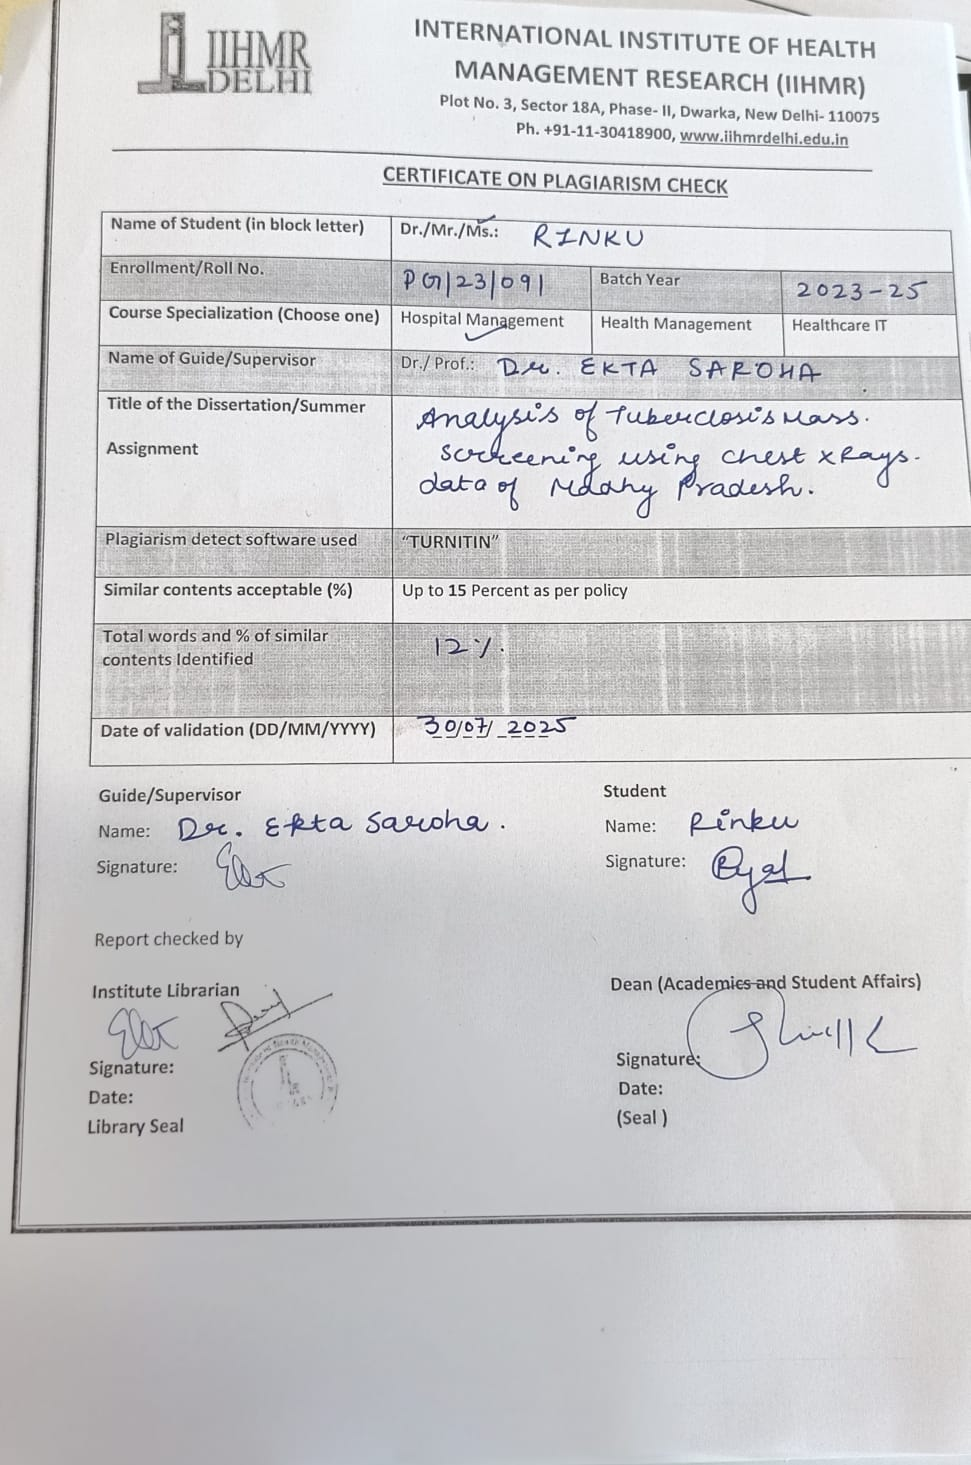 IIHMR
DELHI
INTERNATIONAL INSTITUTE OF HEALTH
MANAGEMENT RESEARCH (IIHMR)
Plot No. 3, Sector 18A, Phase- II, Dwarka, New Delhi- 110075
Ph. +91-11-30418900, www.iihmrdelhi.edu.in
CERTIFICATE ON PLAGIARISM CHECK
Name of Student (in block letter) Dr./Mr./Ms.: RINKU
Enrollment/Roll No. PG/23/091 Batch Year 2023-25
Course Specialization (Choose one) Hospital Management Health Management Healthcare IT
Name of Guide/Supervisor Dr./ Prof.: Dr. EKTA SAROHA
Title of the Dissertation/Summer Analysis of Tuberclosis Mass.
Assignment screening using chest x Rays.
data of Mdahy Pradesh.
Plagiarism detect software used "TURNITIN"
Similar contents acceptable (%) Up to 15 Percent as per policy
Total words and % of similar 12%.
contents Identified
Date of validation (DD/MM/YYYY) 30/07/2025
Guide/Supervisor Student
Name: Dr. Ekta Saroha. Name: Rinku
Signature: Signature:
Report checked by
Institute Librarian Dean (Academics and Student Affairs)
Signature: Signature:
Date: Date:
Library Seal (Seal )